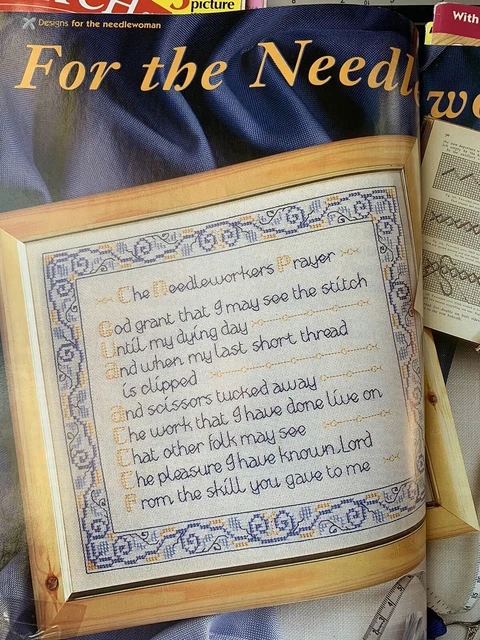 TCH
picture
With
Designs for the needlewoman
For the Needlewo
The Needleworkers Prayer
God grant that I may see the stitch
Until my dying day
and when my last short thread
is clipped
and scissors tucked away
The work that I have done live on
That other folk may see
The pleasure I have known, Lord
From the skill you gave to me